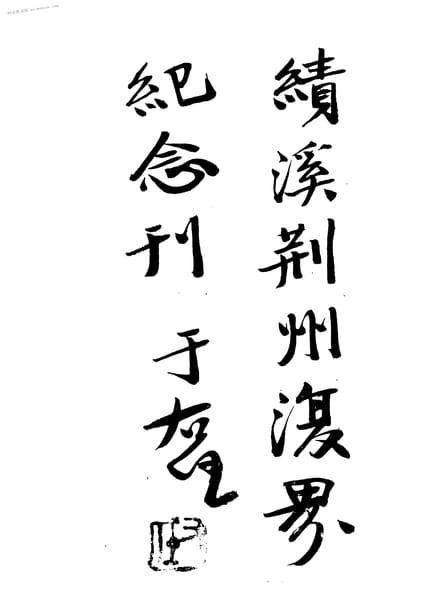 績溪荆州復界
紀念刊
于右任